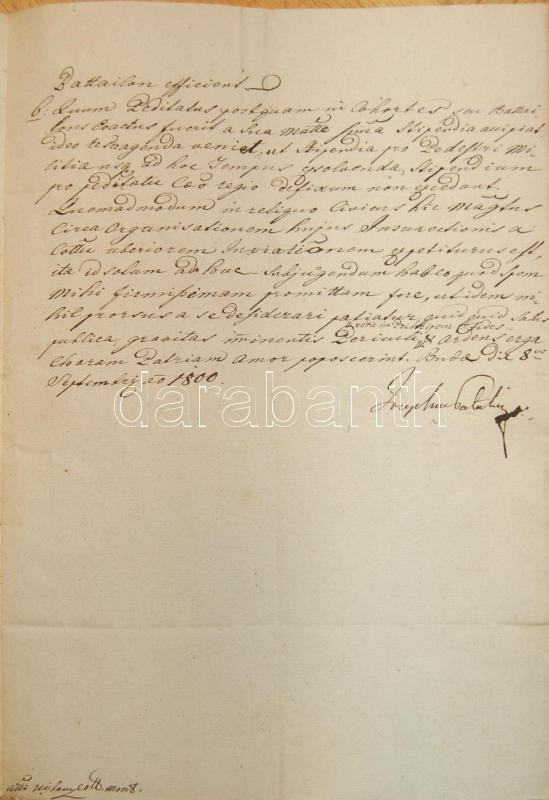 Battailon efficient
6: Quum Peditatus postquam in Cohortes seu Battai-
lons Coactus fuerit a Sua Matte Ssma Stipendia accipiat
ideo res agenda veniet, ut Stipendia pro Pedestri Mi-
litia usq ad hoc Tempus exolvenda, Stipendium
pro peditatu Cæo regio defixum non excedant.
Quemadmodum in reliquo Civicus hic Magtus
Circa Organisationem hujus Insurrectionis a
Cottu uberiorem expetiturus est,
ita id solum adhuc subjungendum habeo, quod spem
mihi firmissimam promittam fore, ut idem ni-
hil prorsus a se desiderari patiatur, quid quid Salus
erga Principem Fides
publica, gravitas imminentis Periculi, & ardens erga
Charam Patriam Amor poposcerint. Budæ die 8va
Septembris ao 1800.
Josephus Palatinus
darabanth